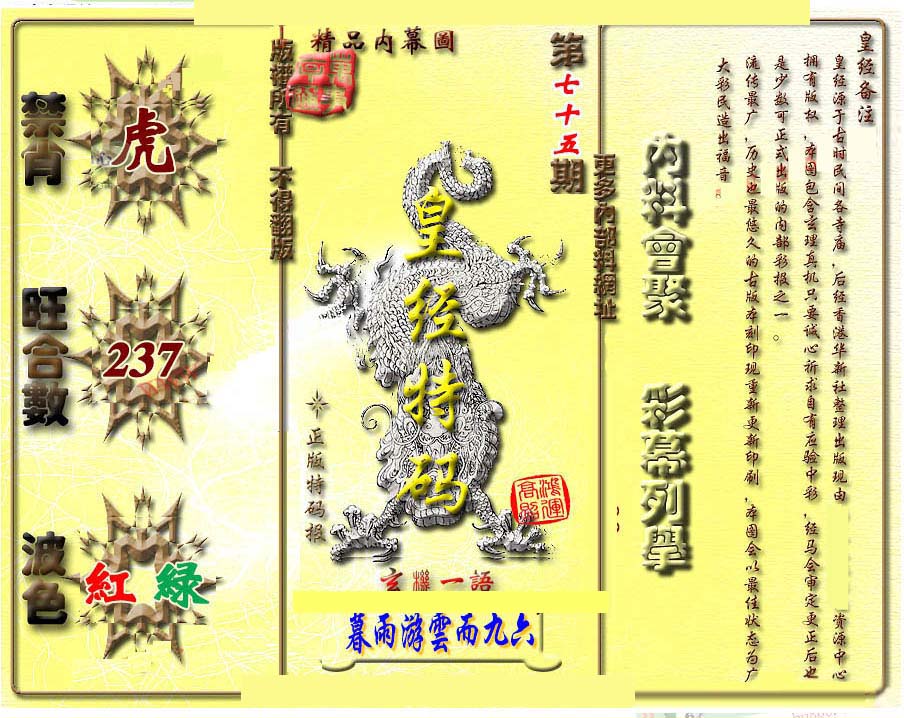 禁肖
虎
旺合數
237
波色
紅 綠
版權所有 不得翻版
精品内幕圖
皇经特码
正版特码报
鴻運高照
玄機一語
暮雨游雲而九六
第七十五期
更多内部料網址
内料會聚 彩幕列舉
皇经备注
皇经源于古时民间各寺庙,后经香港华新社整理出版现由 资源中心
拥有版权,本图包含玄理真机只要诚心祈求自有应验中彩,经马会审定更正后也
是少数可正式出版的内部彩报之一。
流传最广,历史也最悠久的古版本刻印现重新更新印刷,本图会以最佳状态为广
大彩民造出福音